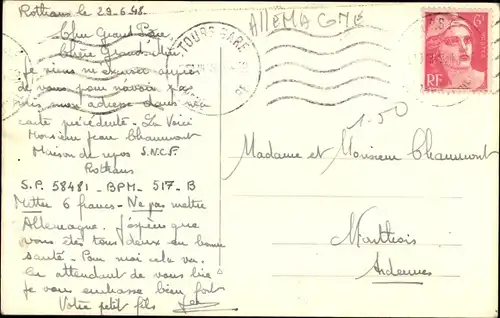 Rothaus le 29.6.48.
Cher Grand Père
Chère Grand'Mère
Je viens m'excuser auprès
de vous pour n'avoir pas
mis mon adresse dans ma
carte précédente. La Voici
Monsieur Jean Chaumont
Maison de repos S.N.C.F.
Rothaus
S.P. 58481 - BPM - 517 - B
Mettre 6 francs - Ne pas mettre
Allemagne. J'espère que
vous êtes tous deux en bonne
santé - Pour moi cela va.
En attendant de vous lire
Je vous embrasse bien fort
Votre petit fils
ALLEMAGNE
TOURS GARE
6F
RF
1-50
Madame et Monsieur Chaumont
Monthois
Ardennes